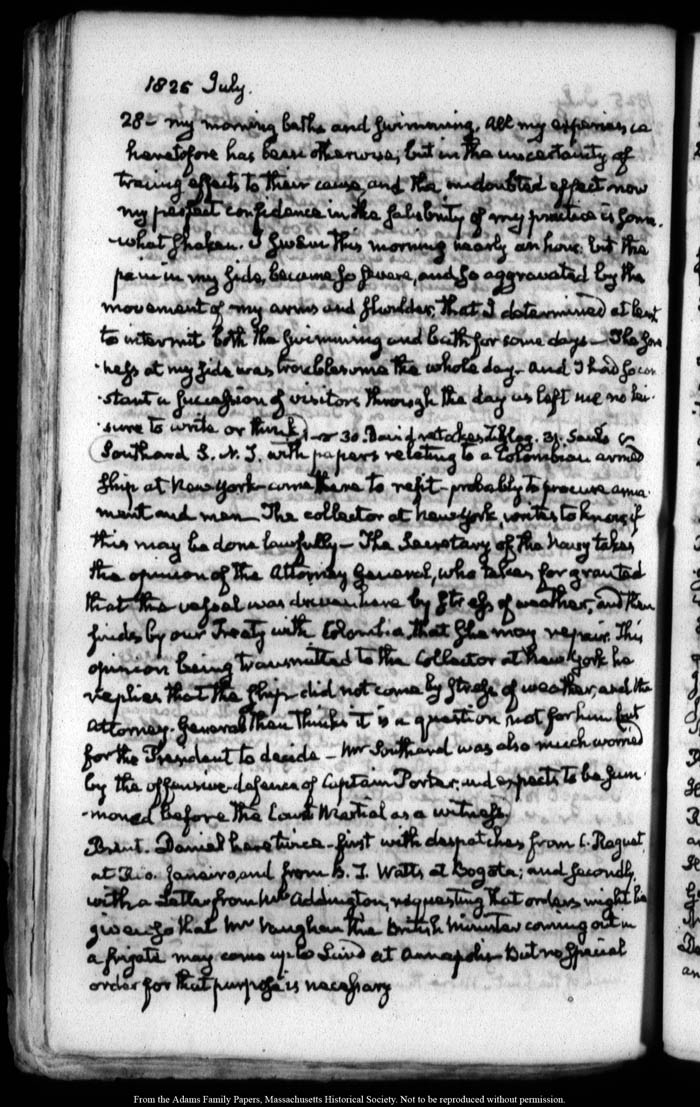 1825 July.
28- my morning bathe and swimming. All my experience
heretofore has been otherwise; but in the uncertainty of
tracing effects to their cause, and the undoubted effect now
my perfect confidence in the salubrity of my practice is some-
what shaken. I swam this morning nearly an hour; but the
pain in my side, became so severe, and so aggravated by the
movement of my arms and shoulder, that I determined at least
to intermit both the swimming and bath for some days- The sore-
ness at my side was troublesome the whole day- and I had so con-
stant a succession of visitors through the day as left me no lei-
sure to write or think)
Southard S. N. J. with papers relating to a Colombian armed
ship at New York- come there to refit- probably to procure arma-
ment and men- The collector at New York, writes to know, if
this may be done lawfully- The Secretary of the Navy takes
the opinion of the Attorney General, who takes for granted
that the vessel was driven here by stress of weather, and then
finds by our Treaty with Colombia that she may repair. This
opinion being transmitted to the Collector at New York he
replies that the ship did not come by stress of weather, and the
Attorney General then thinks it is a question not for him but
for the President to decide- Mr Southard was also much worried
by the offensive-defence of Captain Porter; and expects to be sum-
moned before the Court Martial as a witness.
Brent. Daniel here twice- first with despatches from C. Raguet
at Rio Janeiro, and from B. T. Watts at Bogota; and secondly,
with a Letter from Mr Addington, requesting that orders might be
given so that Mr Vaughan the British Minister coming out in
a frigate may come up to land at Annapolis- But no special
order for that purpose is necessary
From the Adams Family Papers, Massachusetts Historical Society. Not to be reproduced without permission.